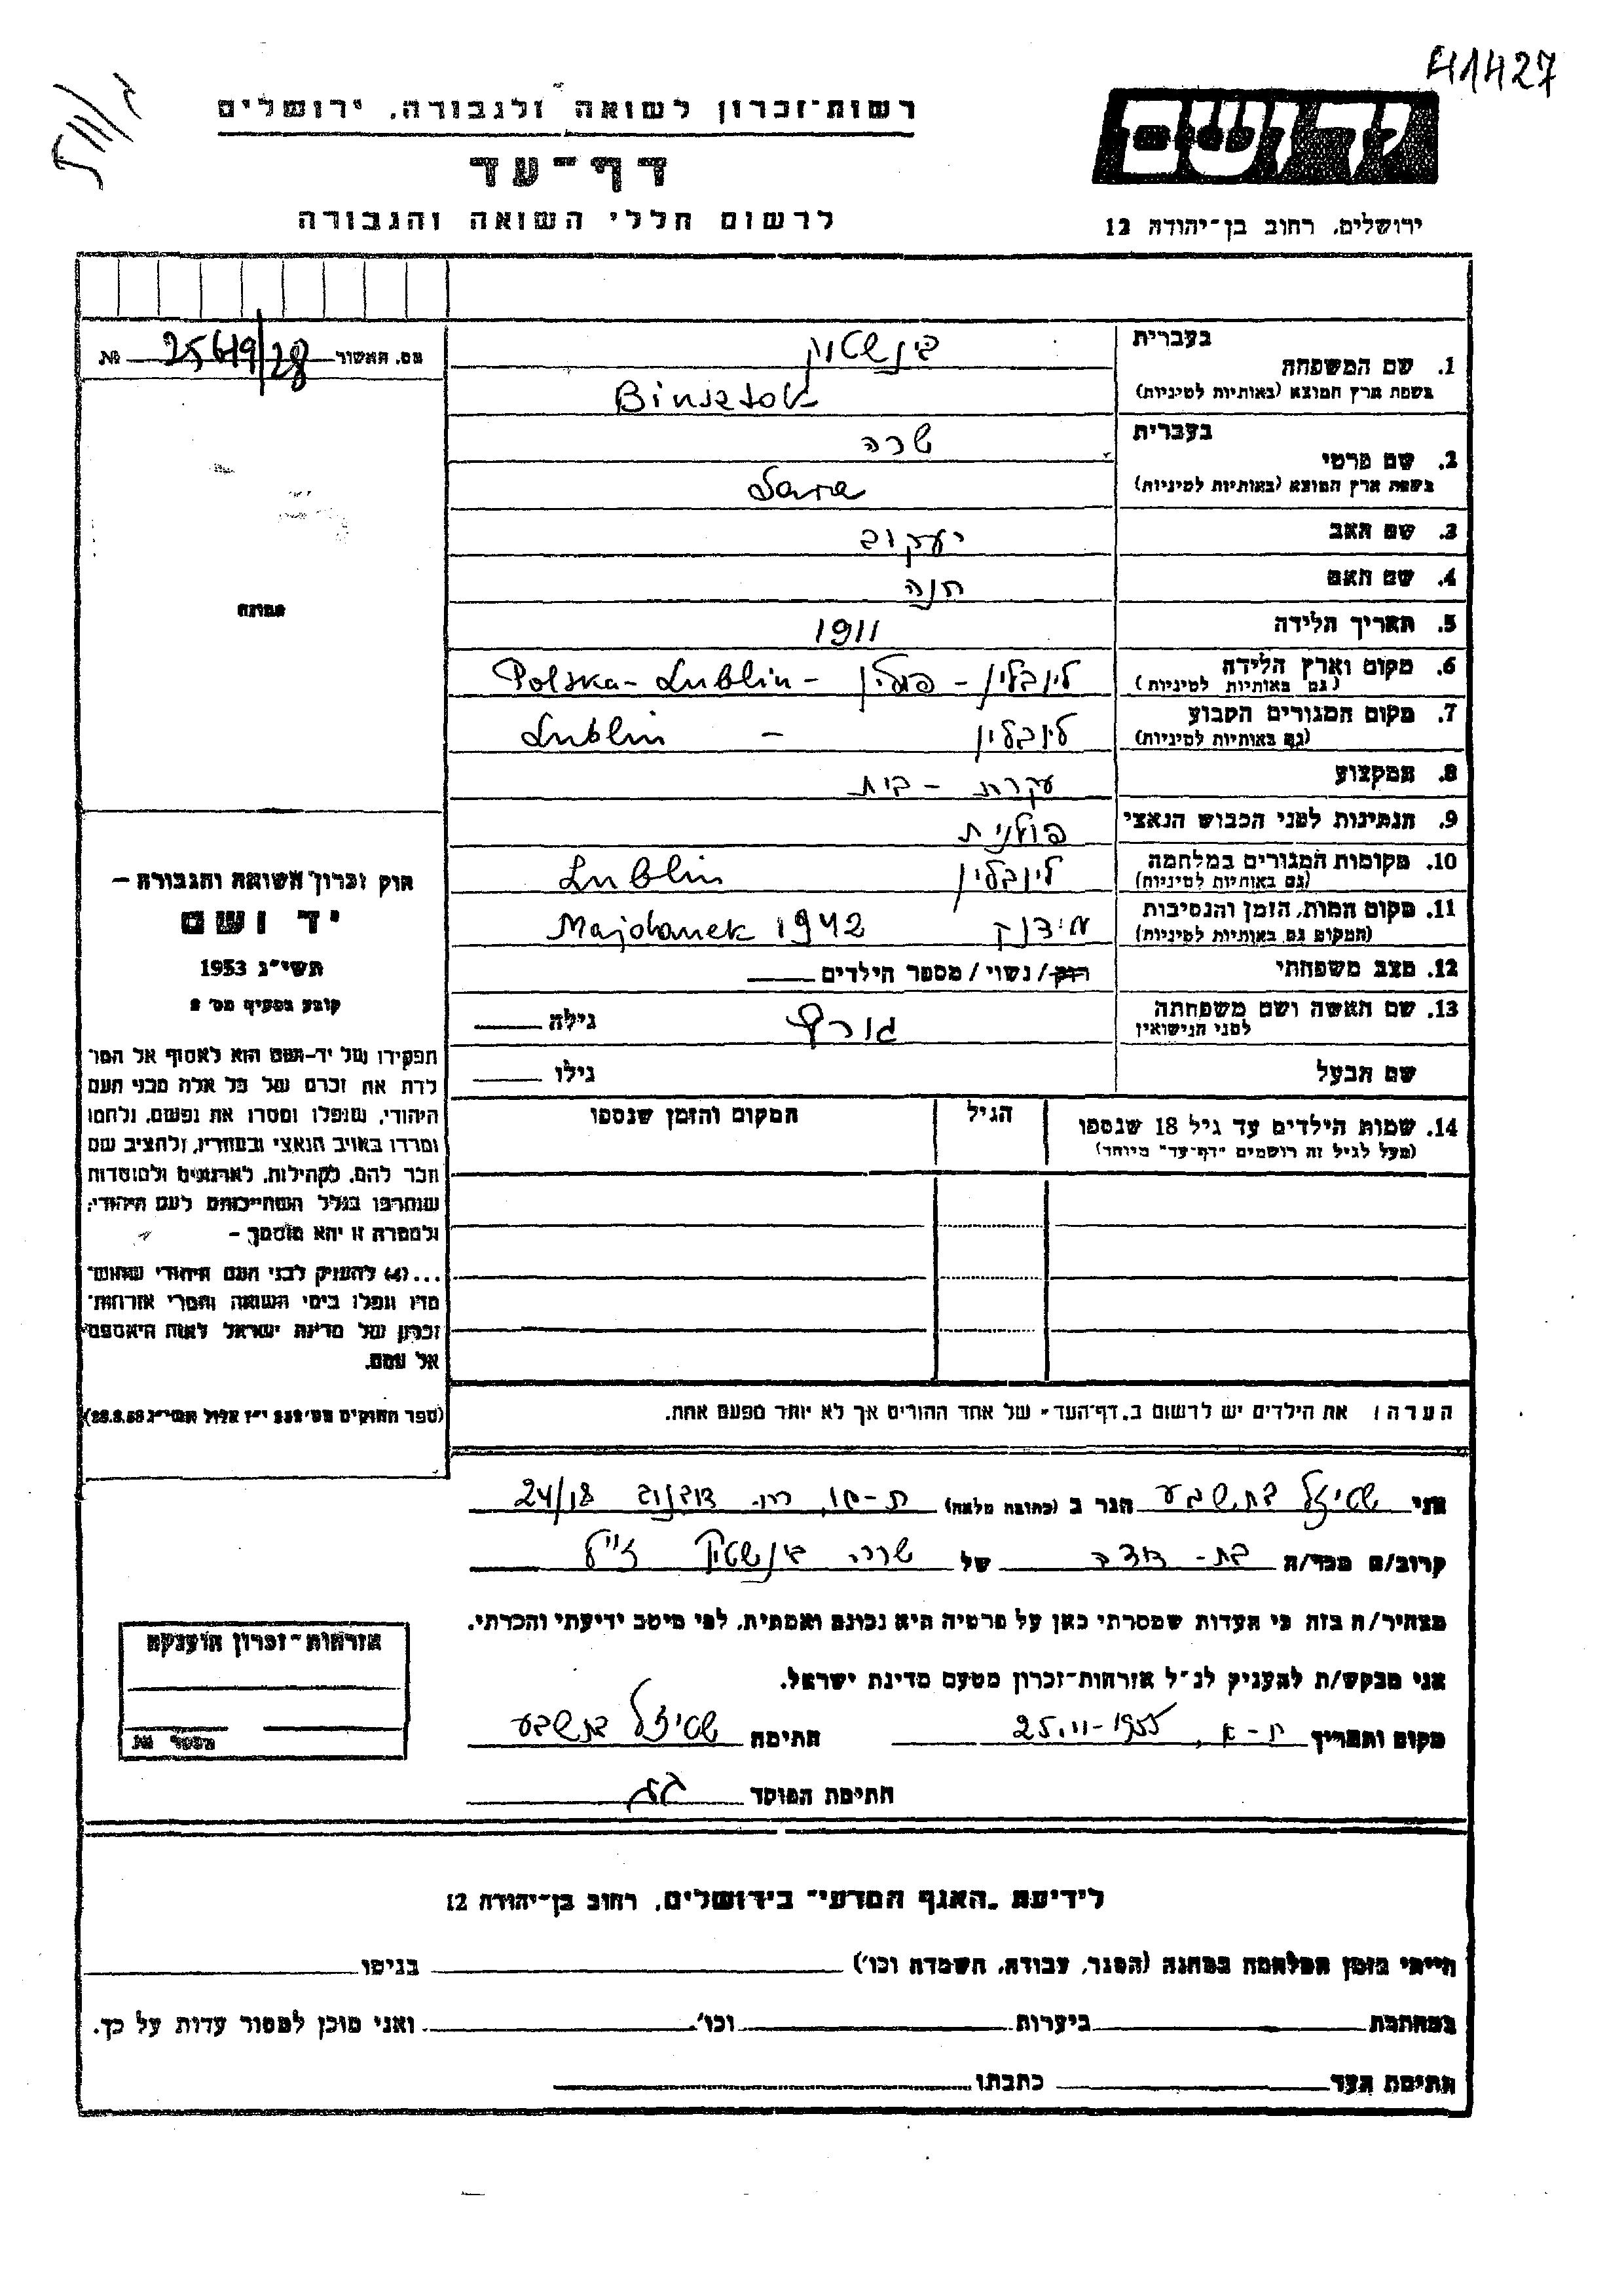 41427
רשות־זכרון לשואה ולגבורה, ירושלים
דף־עד
לרשום חללי השואה והגבורה
יד ושם
ירושלים, רחוב בן־יהודה 12
מס. האשור 25649/28 №
תמונה
חוק זכרון השואה והגבורה —
יד ושם
תשי"ג 1953
קובע בסעיף מס' 2
תפקידו של יד-ושם הוא לאסוף אל המו־
לדת את זכרם של כל אלה מבני העם
היהודי, שנפלו ומסרו את נפשם, נלחמו
ומרדו באויב הנאצי ובעוזריו, ולהציב שם
וזכר להם, לקהילות, לארגונים ולמוסדות
שנחרבו בגלל השתייכותם לעם היהודי;
ולמטרה זו יהא מוסמך —
...(4) להעניק לבני העם היהודי שהוש־
מדו ונפלו בימי השואה והמרי אזרחות־
זכרון של מדינת ישראל לאות היאספם
אל עמם.
(ספר החוקים מס' 132 י"ז אלול תשי"ג 28.8.53)
בעברית
1. שם המשפחה בינשטוק
בשפת ארץ המוצא (באותיות לטיניות) Binsztok
בעברית
2. שם פרטי שרה
בשפת ארץ המוצא (באותיות לטיניות) Sara
3. שם האב יעקוב
4. שם האם חנה
5. תאריך הלידה 1911
6. מקום וארץ הלידה לובלין - פולין - Polska - Lublin
(גם באותיות לטיניות)
7. מקום המגורים הקבוע לובלין - Lublin
(גם באותיות לטיניות)
8. המקצוע עקרת - בית
9. הנתינות לפני הכבוש הנאצי פולנית
10. מקומות המגורים במלחמה לובלין Lublin
(גם באותיות לטיניות)
11. מקום המות, הזמן והנסיבות מידנק Majdanek 1942
(המקום גם באותיות לטיניות)
12. מצב משפחתי רוק/נשוי/מספר הילדים
13. שם האשה ושם משפחתה גורף גילה
לפני הנישואין
שם הבעל גילו
14. שמות הילדים עד גיל 18 שנספו הגיל המקום והזמן שנספו
(מעל לגיל זה רושמים "דף־עד" מיוחד)
הערה: את הילדים יש לרשום ב"דף־העד" של אחד ההורים אך לא יותר מפעם אחת.
אני בת שבע הגר ב (כתובת מלאה) ת-א, רח. דובנוב 24/18
קרוב/ה מכר/ה בת - דודה של שרה בינשטוק ז"ל
מצהיר/ה בזה כי העדות שמסרתי כאן על פרטיה היא נכונה ואמתית, לפי מיטב ידיעתי והכרתי.
אני מבקש/ת להעניק לנ"ל אזרחות־זכרון מטעם מדינת ישראל.
מקום ותאריך ת-א, 25.11-1955 חתימה בת שבע
חתימת הפוקד
אזרחות־זכרון הוענקה
מספר №
לידיעת "האגף המדעי" בירושלים, רחוב בן־יהודה 12
הייתי בזמן המלחמה במחנה (הסגר, עבודה, השמדה וכו') בגיטו
במחתרת ביערות וכו' ואני מוכן למסור עדות על כך.
חתימת העד כתבתו